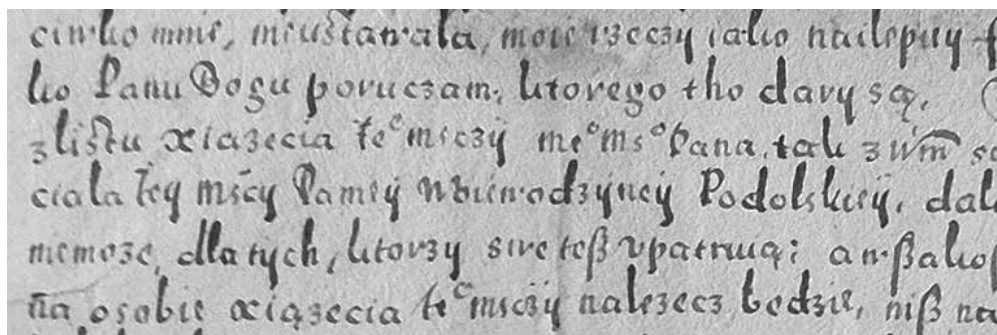 ciwko mnie, nieustawała, moie rzeczy iako nailepiey
ko Panu Bogu poruczam, ktorego tho dary są.
z listu xiazecia Ie° msczÿ me° ms° Pana, tak z wm̃
ciala Iey mscy Paniey Woiewodzÿneÿ Podolskieÿ, dal
niemoze, dla tych, ktorzy swe teß vpatruią; a wßako
na osobie xiązecia Ie° msczÿ nalezecz będzie, niß na